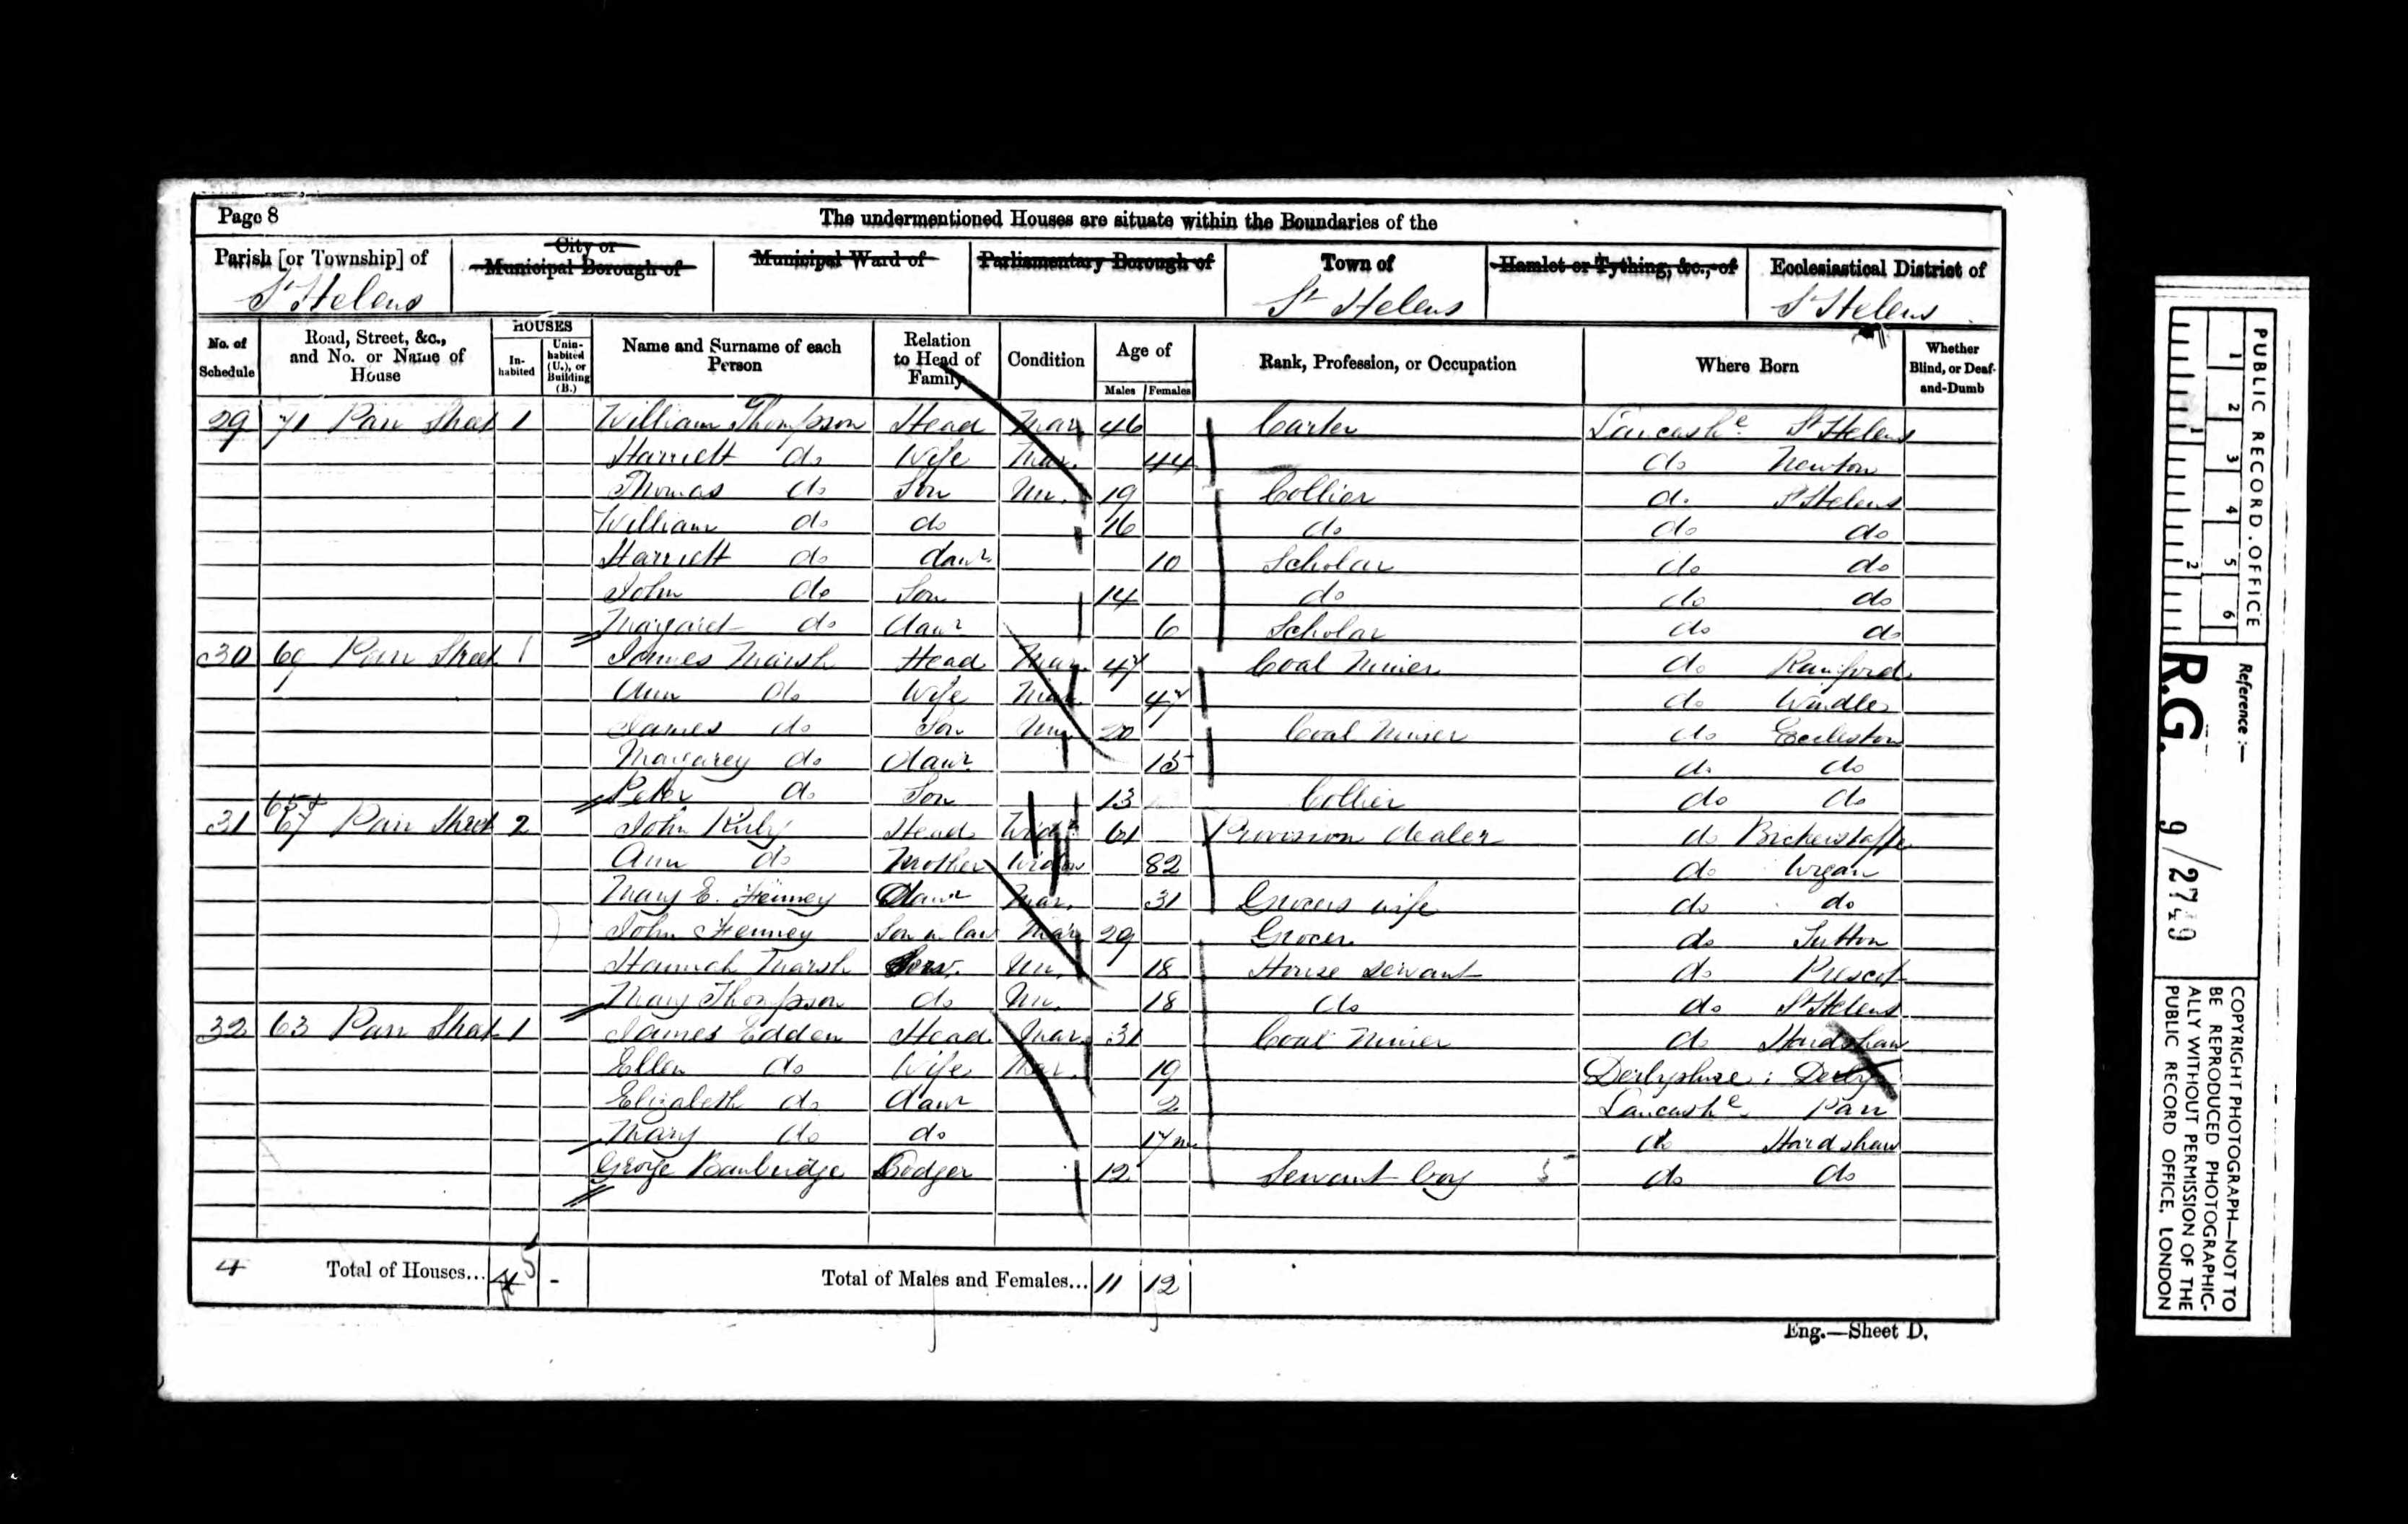 Page 8
The undermentioned Houses are situate within the Boundaries of the
Parish [or Township] of City or Municipal Borough of Municipal Ward of Parliamentary Borough of Town of Hamlet or Tything, &c., of Ecclesiastical District of
St Helens St Helens St Helens
No. of Schedule Road, Street, &c., and No. or Name of House HOUSES Inhabited Uninhabited (U.), or Building (B.) Name and Surname of each Person Relation to Head of Family Condition Age of Males Females Rank, Profession, or Occupation Where Born Whether Blind, or Deaf-and-Dumb
29 71 Parr Street 1 William Thompson Head Mar 46 Carter Lancashe St Helens
Harriett do Wife Mar. 44 do Newton
Thomas do Son Un. 19 Collier do St Helens
William do do 16 do do do
Harriett do daur 10 Scholar do do
John do Son 14 do do do
Margaret do daur 6 Scholar do do
30 69 Parr Street 1 James Marsh Head Mar. 47 Coal Miner do Rainford
Ann do Wife Mar. 47 do Windle
James do Son Un 20 Coal Miner do Eccleston
Margarey do daur 15 do do
Peter do Son 13 Collier do do
31 65 & 67 Parr Street 2 John Kirby Head Widr 61 Provision dealer do Bickerstaffe
Ann do Mother Widow 82 do Wigan
Mary E. Fenney daur Mar. 31 Grocers wife do do
John Fenney Son in law Mar 29 Grocer do Sutton
Hannah Marsh Serv. Un. 18 House Servant do Prescot
Mary Thompson do Un. 18 do do St Helens
32 63 Parr Street 1 James Edden Head Mar 31 Coal Miner do Hardshaw
Ellen do Wife Mar. 19 Derbyshire: Derby
Elizabeth do daur 2 Lancashe Parr
Mary do do 17m do Hardshaw
George Bainbridge Lodger 12 Servant boy do do
4 Total of Houses... 4 5 - Total of Males and Females... 11 12
Eng.—Sheet D.
PUBLIC RECORD OFFICE
1 2 3 4 5 6
1 2
Reference:—
R.G. 9/2749
COPYRIGHT PHOTOGRAPH—NOT TO
BE REPRODUCED PHOTOGRAPHIC-
ALLY WITHOUT PERMISSION OF THE
PUBLIC RECORD OFFICE, LONDON